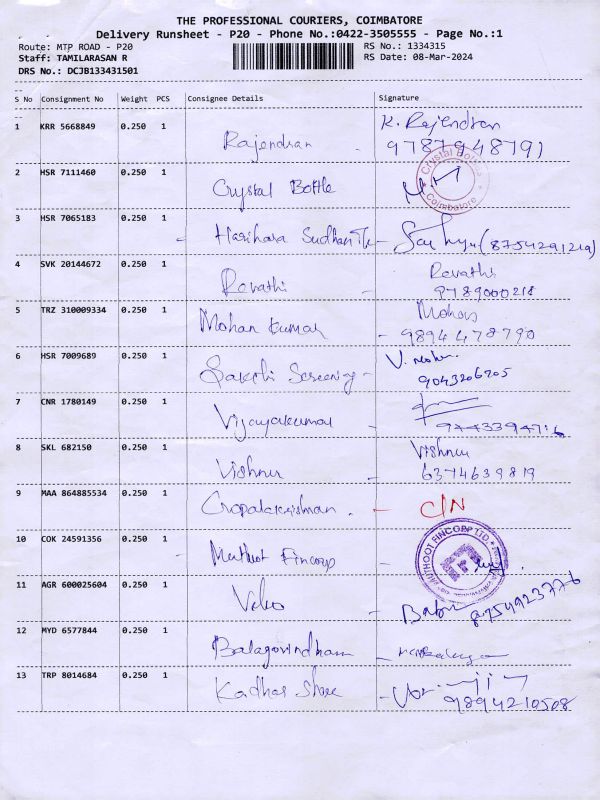 THE PROFESSIONAL COURIERS, COIMBATORE
Delivery Runsheet - P20 - Phone No.:0422-3505555 - Page No.:1
Route: MTP ROAD - P20
RS No.: 1334315
Staff: TAMILARASAN R
RS Date: 08-Mar-2024
DRS No.: DCJB133431501
S No Consignment No Weight PCS Consignee Details Signature
1 KRR 5668849 0.250 1 Rajendran K. Rajendran
9787948791
2 HSR 7111460 0.250 1 Crystal Bottle
Crystal
Coimbatore
3 HSR 7065183 0.250 1 Harihara Sudhan (8754291219)
4 SVK 20144672 0.250 1 Revathi Revathi
9789000218
5 TRZ 310009334 0.250 1 Mohan Kumar Mohan
9894478790
6 HSR 7009689 0.250 1 Sakthi Screening -
9043206705
7 CNR 1780149 0.250 1 Vijayakumar
8 SKL 682150 0.250 1 Vishnu - Vishnu
6374639819
9 MAA 864885534 0.250 1 Gopalakrishnan. - C/N
10 COK 24591356 0.250 1 Muthoot Fincorp
MUTHOOT FINCORP LTD.
11 AGR 600025604 0.250 1 - Babu 8754923776
12 MYD 6577844 0.250 1 Balagovindham -
13 TRP 8014684 0.250 1 Kadhar Share -
9894210508